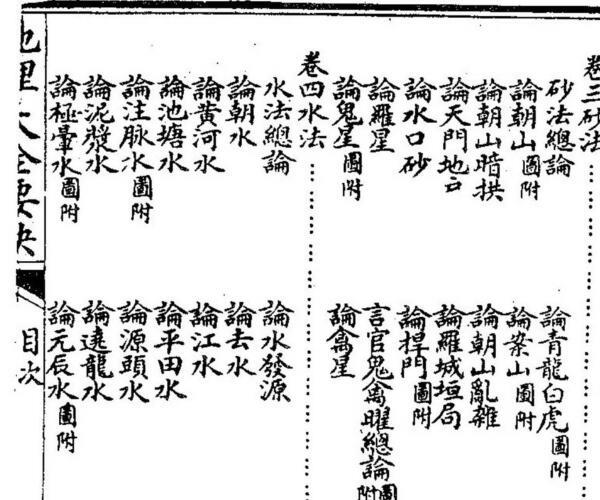 卷三砂法
砂法總論 論青龍白虎圖附
論朝山圖附 論案山圖附
論朝山暗拱 論朝山亂雜
論天門地户 論羅城垣局
論水口砂 論捍門圖附
論羅星 言官鬼禽曜總論圖附
論鬼星圖附 論禽星
卷四水法
水法總論 論水發源
論朝水 論去水
論黃河水 論江水
論池塘水 論平田水
論注脉水圖附 論源頭水
論泥漿水 論遶龍水
論極暈水圖附 論元辰水圖附
地理大全要訣 目次